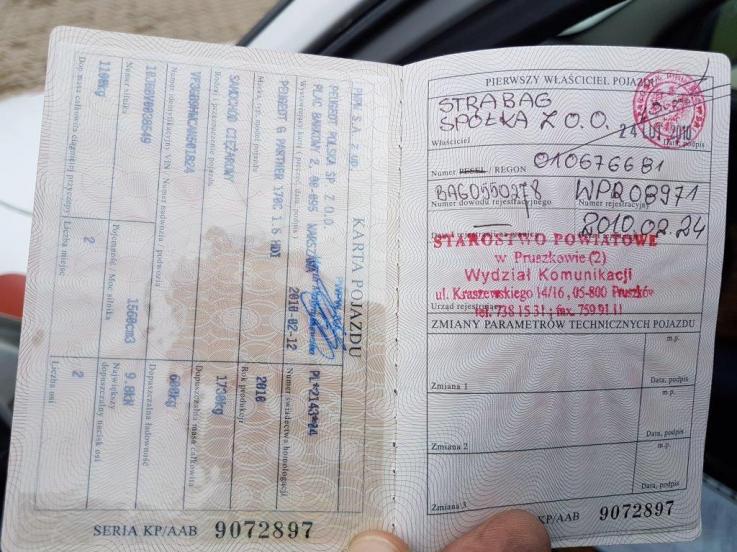 KARTA POJAZDU
PEUGEOT POLSKA SP Z O.O.
PLAC BANKOWY 2, 00-095 WARSZAWA
2010-02-12
PEUGEOT G PARTNER 170C 1.6 HDI
SAMOCHÓD CIĘŻAROWY
Numer identyfikacyjny VIN / Numer nadwozia / podwozia
Numer silnika
1100kg
Dop. masa całkowita ciągniętej przyczepy
Numer świadectwa homologacji
2010
Rok produkcji
1700kg
Dopuszczalna masa całkowita
600kg
Dopuszczalna ładowność
1560cm3
Pojemność / Moc silnika
9.8kN
Największy dopuszczalny nacisk osi
2
Liczba miejsc
2
Liczba osi
SERIA KP/AAB 9072897
PIERWSZY WŁAŚCICIEL POJAZDU
STRABAG
SPÓŁKA Z O.O.
24 LUT 2010
Właściciel
podpis
Numer PESEL / REGON 010676681
WPR 08971
Numer dowodu rejestracyjnego
Numer rejestracyjny
2010.02.24
STAROSTWO POWIATOWE
w Pruszkowie (2)
Wydział Komunikacji
ul. Kraszewskiego 14/16, 05-800 Pruszków
tel. 738 15 31; fax. 759 91 11
Urząd rejestrujący
ZMIANY PARAMETRÓW TECHNICZNYCH POJAZDU
m.p.
Zmiana 1
Data, podpis
m.p.
Zmiana 2
Data, podpis
m.p.
Zmiana 3
Data, podpis
KP/AAB 9072897